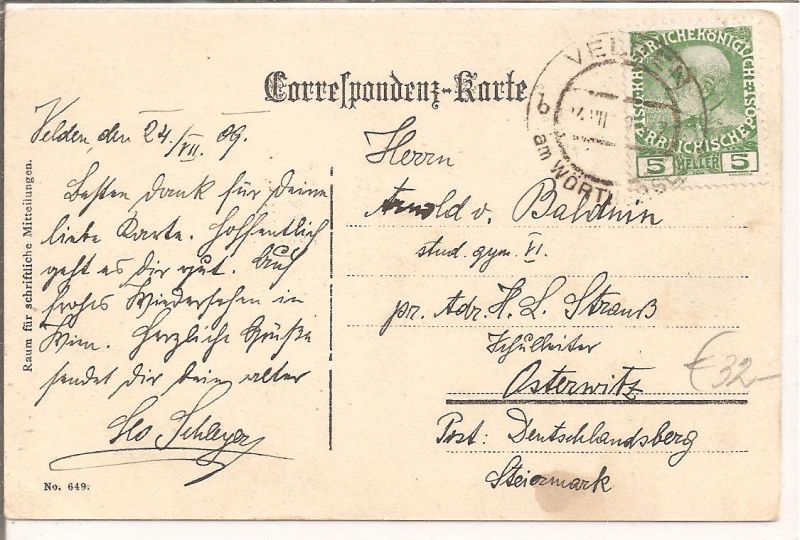 Correspondenz-Karte
Velden, den 24./VII. 09.
Besten Dank für Deine
liebe Karte. Hoffentlich
geht es Dir gut. Auf
frohes Wiedersehen in
Wien. Herzliche Grüße
sendet Dir Dein alter
Leo Schleyer
Raum für schriftliche Mitteilungen.
No. 649.
VELDEN
am WÖRTH
b
KAISERLICHE KÖNIGLICHE
ÖSTERREICHISCHE
5 HELLER 5
Herrn
Arnold v. Balduin
stud. gym. VI.
pr. Adr. H. L. Strauß
Schulleiter
Osterwitz
Post: Deutschlandsberg
Steiermark
€ 32-